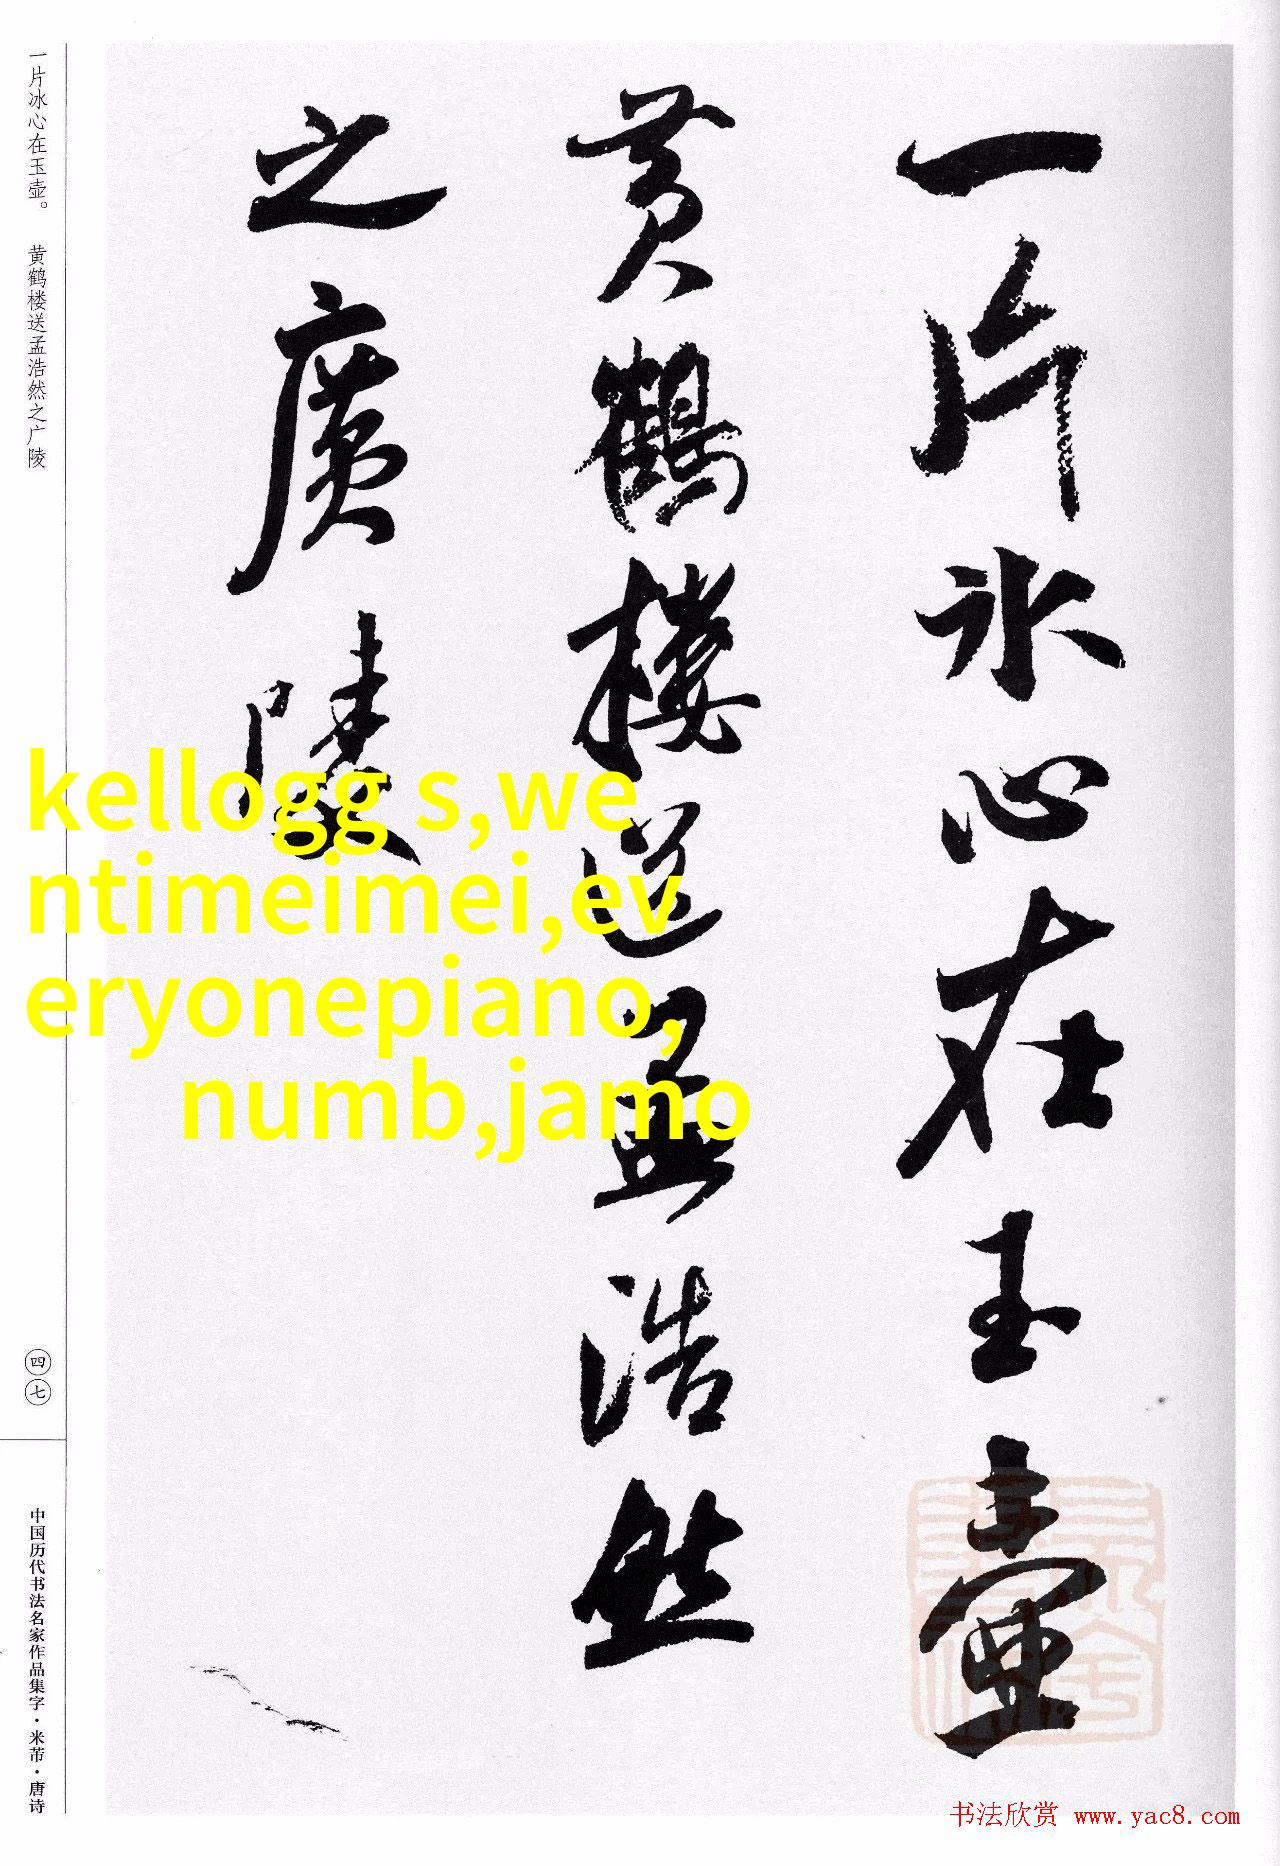 一片冰心在玉壶
黄鹤楼送孟浩然
之廣陵
一片冰心在玉壶。 黄鹤楼送孟浩然之广陵
四七
中国历代书法名家作品集字·米芾·唐诗
kellogg s,we
ntimeimei,ev
eryonepiano,
numb,jamo
书法欣赏 www.yac8.com